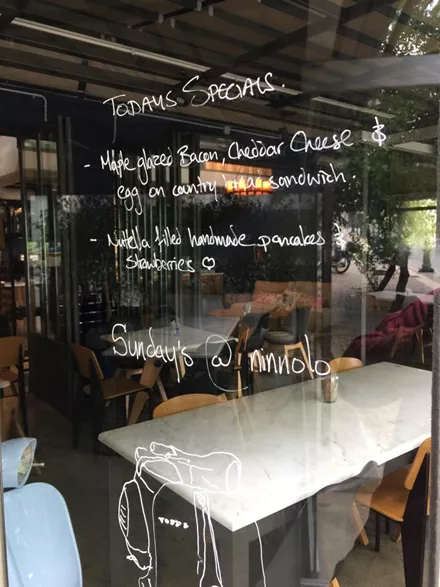 TODAYS SPECIALS.
- Maple glazed Bacon, Cheddar Cheese &
egg on country sandwich.
- Nutella filled handmade pancakes &
Strawberries ♡
Sunday's @ ninnolo